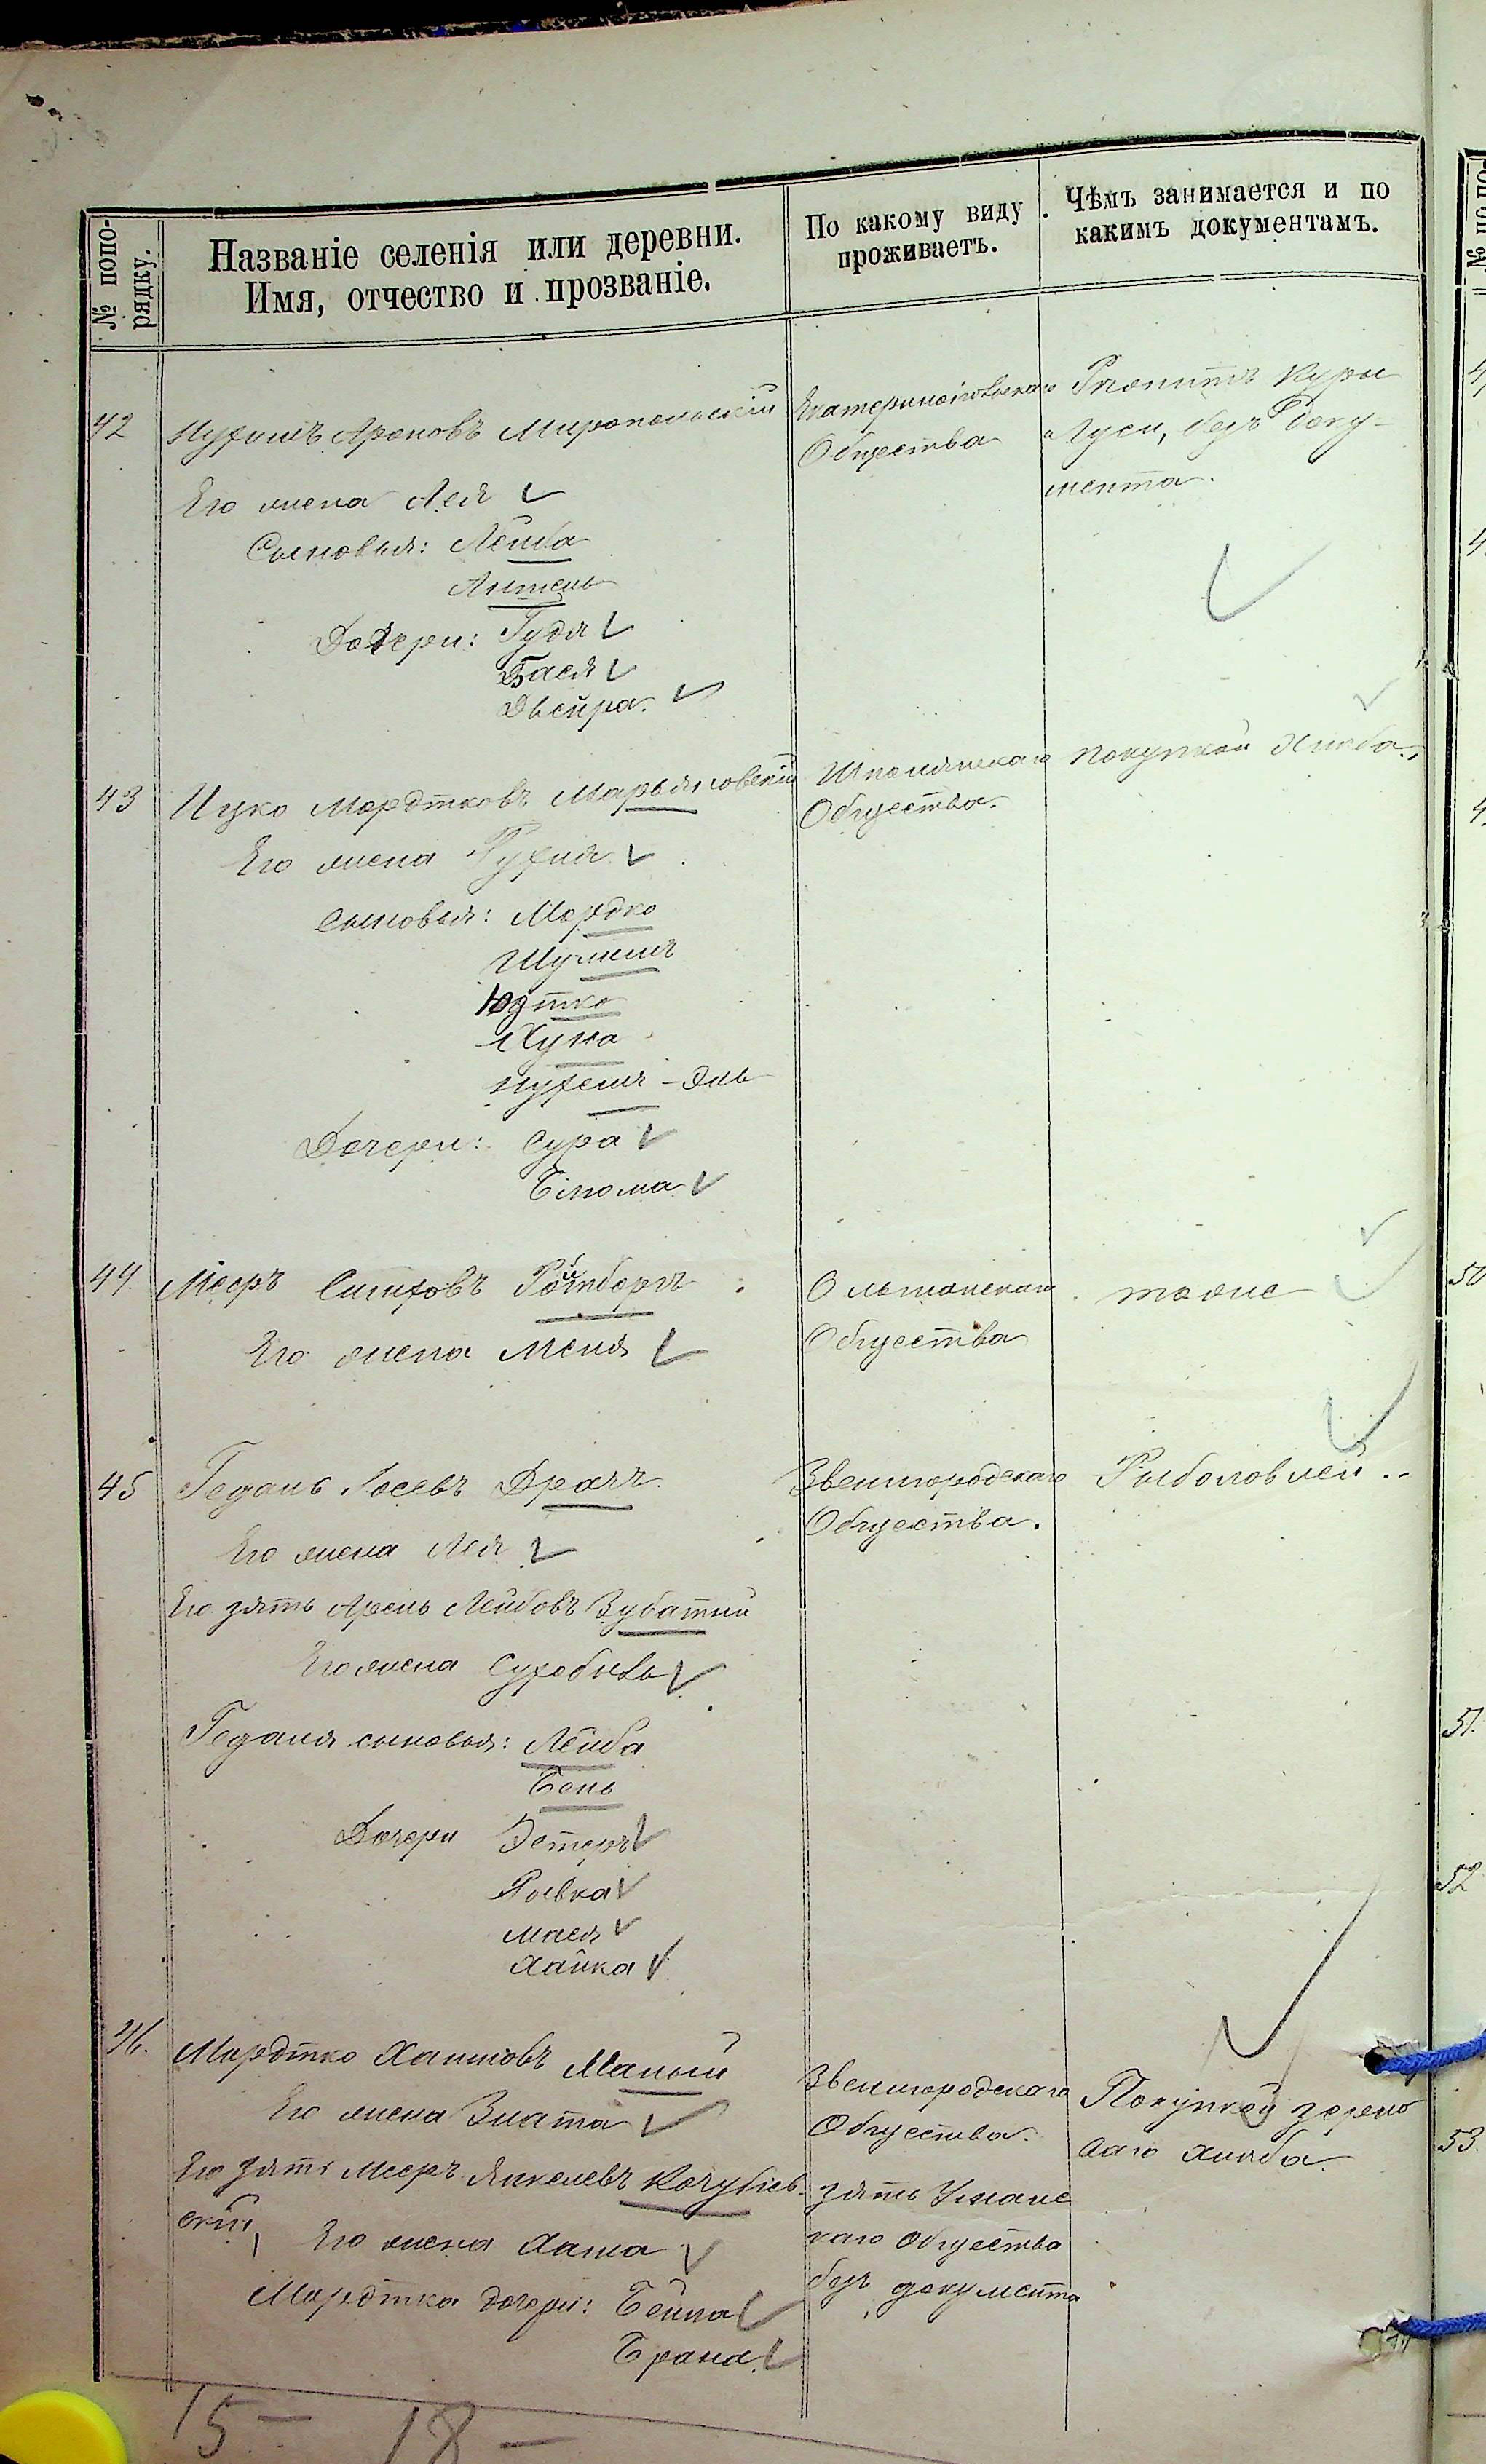 № попо-
рядку.
Названіе селенія или деревни.
Имя, отчество и прозваніе.
По какому виду
проживаетъ.
Чѣмъ занимается и по
какимъ документамъ.
42
Нухимъ Ароновъ Миропольскій
Его жена Лея
Сыновья: Лейба
Дочери: Гудя
Бася
Двейра.
Общества
куры
Гуси, безъ доку-
мента.
43
Ицко Мордтковъ Марьяновскій
Его жена Рухля
сыновья: Мордко
Шулимъ
Юдтко
Нухимъ-Эль
Дочери: Сура
Шполянскаго
Общества.
покупкой хлѣба.
44
Мееръ Ройтбергъ
Его жена Меня
Ольшанскаго
Общества
тоже
45
Гедаль Іосевъ Драчъ.
Его жена Лея
Его зять Арень Лейбовъ Зубатый
Его жена
Гедаля сыновья: Лейба
Бень
Дочери Эстеръ
Ривка
Мася
Хайка
Звенигородскаго
Общества.
Рыболовлей
46.
Мордтко Хаимовъ Малый
Его жена Злата
Его зять Мееръ Янкелевъ Кочубіев-
скій, Его жена Хаша
Мордтка дочери: Бейла
Брана
Звенигородскаго
Общества.
зять Уманс
каго Общества
безъ документа
Покупкой зерно
ваго хлѣба.
15 - 18 -
№ по по-
50
51.
52
53.